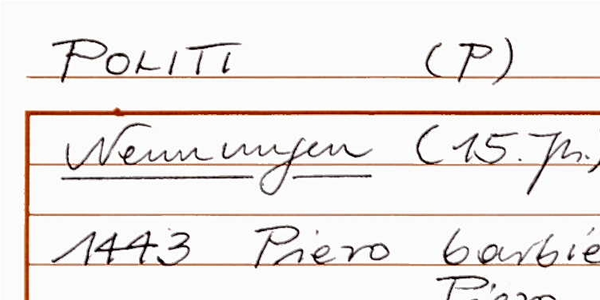 POLITI (P)
Nennungen (15. Jh.)
1443 Piero barbie
Piero